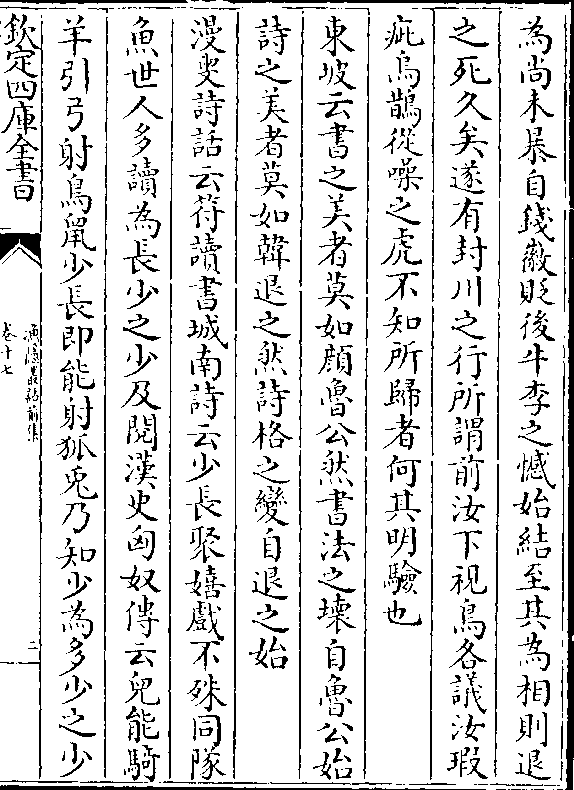 為尚未暴自錢徽貶後牛李之憾始結至其為相則退
之死久矣遂有封川之行所謂前汝下視鳥各議汝瑕
疵烏鵲從噪之虎不知所歸者何其明驗也
東坡云書之美者莫如顔魯公然書法之壊自魯公始
詩之美者莫如韓退之然詩格之變自退之始
漫叟詩話云符讀書城南詩云少長聚嬉戲不殊同隊
魚世人多讀為長少之少及閲漢史匈奴傳云兒能騎
羊引弓射鳥䑕少長即能射狐兎乃知少為多少之少
欽定四庫全書
漁隠叢話前集
卷十七
三